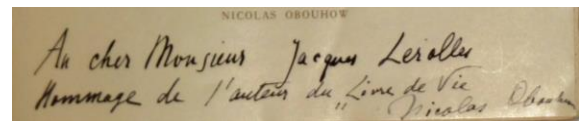 NICOLAS OBOUHOW
Au cher Monsieur Jacques Lerolle
Hommage de l'auteur du "Livre de Vie
Nicolas Obouhow